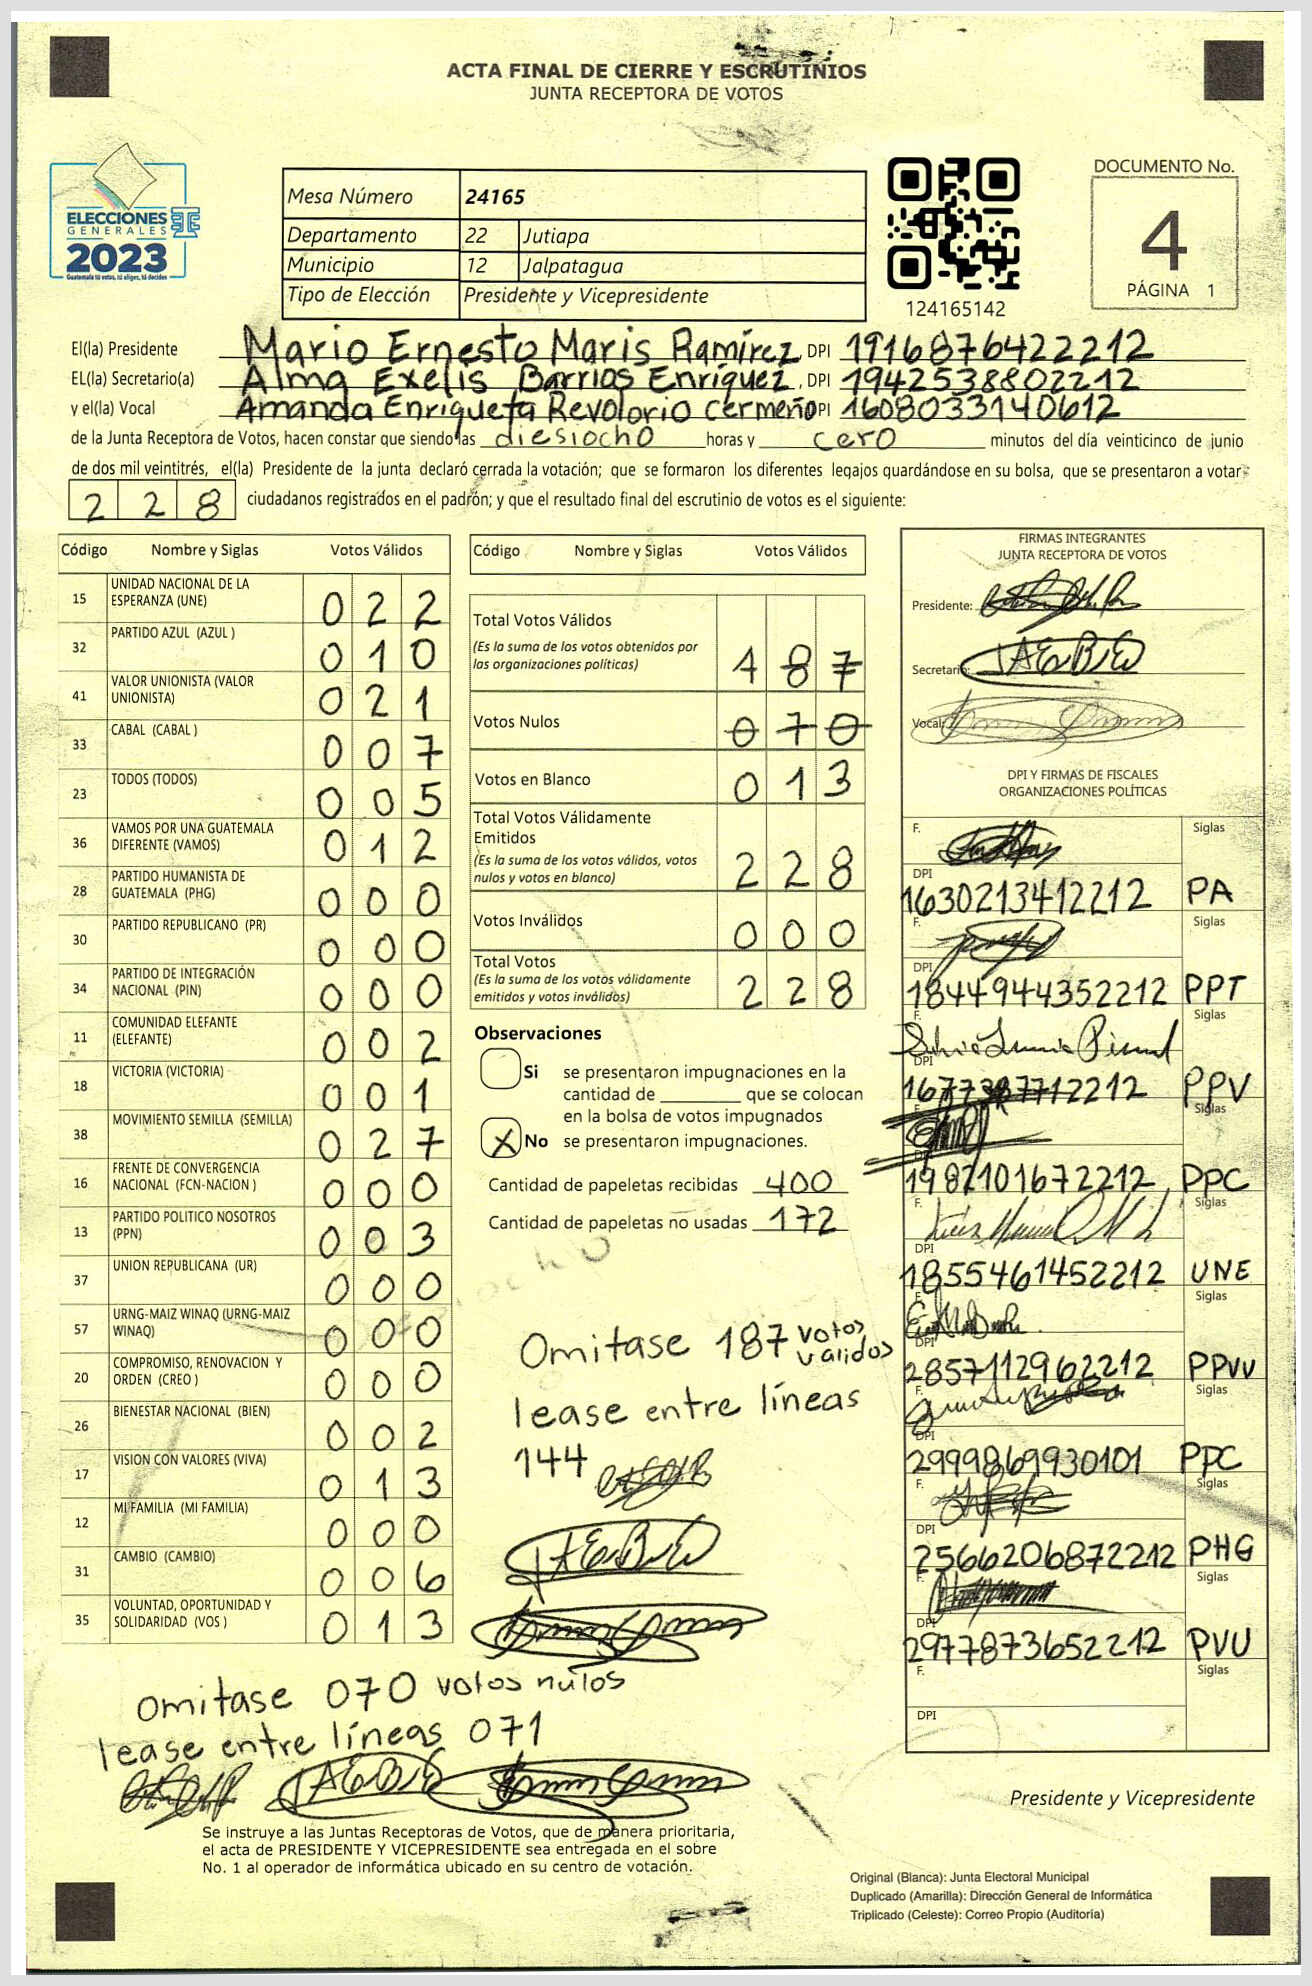 ACTA FINAL DE CIERRE Y ESCRUTINIOS
JUNTA RECEPTORA DE VOTOS
ELECCIONES
GENERALES
2023
Guatemala tú votas, tú eliges, tú decides
Mesa Número 24165
Departamento 22 Jutiapa
Municipio 12 Jalpatagua
Tipo de Elección Presidente y Vicepresidente
124165142
DOCUMENTO No.
4
PÁGINA 1
El(la) Presidente Mario Ernesto Maris Ramírez, DPI 1916876422212
EL(la) Secretario(a) Alma Exelis Barrios Enríquez, DPI 1942538802212
y el(la) Vocal Amanda Enriqueta Revolorio Cermeño DPI 1608033140612
de la Junta Receptora de Votos, hacen constar que siendo las diesiocho horas y cero minutos del día veinticinco de junio
de dos mil veintitrés, el(la) Presidente de la junta declaró cerrada la votación; que se formaron los diferentes legajos guardándose en su bolsa, que se presentaron a votar
228 ciudadanos registrados en el padrón; y que el resultado final del escrutinio de votos es el siguiente:
Código Nombre y Siglas Votos Válidos
15 UNIDAD NACIONAL DE LA ESPERANZA (UNE) 022
32 PARTIDO AZUL (AZUL ) 010
41 VALOR UNIONISTA (VALOR UNIONISTA) 021
33 CABAL (CABAL ) 007
23 TODOS (TODOS) 005
36 VAMOS POR UNA GUATEMALA DIFERENTE (VAMOS) 012
28 PARTIDO HUMANISTA DE GUATEMALA (PHG) 000
30 PARTIDO REPUBLICANO (PR) 000
34 PARTIDO DE INTEGRACIÓN NACIONAL (PIN) 000
11 COMUNIDAD ELEFANTE (ELEFANTE) 002
18 VICTORIA (VICTORIA) 001
38 MOVIMIENTO SEMILLA (SEMILLA) 027
16 FRENTE DE CONVERGENCIA NACIONAL (FCN-NACION ) 000
13 PARTIDO POLITICO NOSOTROS (PPN) 003
37 UNION REPUBLICANA (UR) 000
57 URNG-MAIZ WINAQ (URNG-MAIZ WINAQ) 000
20 COMPROMISO, RENOVACION Y ORDEN (CREO ) 000
26 BIENESTAR NACIONAL (BIEN) 002
17 VISION CON VALORES (VIVA) 013
12 MI FAMILIA (MI FAMILIA) 000
31 CAMBIO (CAMBIO) 006
35 VOLUNTAD, OPORTUNIDAD Y SOLIDARIDAD (VOS ) 013
Omitase 070 votos nulos
lease entre líneas 071
Código Nombre y Siglas Votos Válidos
Total Votos Válidos
(Es la suma de los votos obtenidos por las organizaciones políticas) 187
Votos Nulos 070
Votos en Blanco 013
Total Votos Válidamente Emitidos
(Es la suma de los votos válidos, votos nulos y votos en blanco) 228
Votos Inválidos 000
Total Votos
(Es la suma de los votos válidamente emitidos y votos inválidos) 228
Observaciones
Si se presentaron impugnaciones en la
cantidad de ________ que se colocan
en la bolsa de votos impugnados
X No se presentaron impugnaciones.
Cantidad de papeletas recibidas 400
Cantidad de papeletas no usadas 172
Omitase 187 votos validos
lease entre líneas
144
FIRMAS INTEGRANTES
JUNTA RECEPTORA DE VOTOS
Presidente:
Secretario:
Vocal:
DPI Y FIRMAS DE FISCALES
ORGANIZACIONES POLÍTICAS
F. Siglas
DPI 1630213412212 PA
F. Siglas
DPI 1844944352212 PPT
F. Siglas
DPI 1677387712212 PPV
F. Siglas
DPI 1987101672212 PPC
F. Siglas
DPI 1855461452212 UNE
F. Siglas
DPI 2857112962212 PPVU
F. Siglas
DPI 2999869930101 PPC
F. Siglas
DPI 2566206872212 PHG
F. Siglas
DPI 2977873652212 PVU
F. Siglas
DPI
Presidente y Vicepresidente
Se instruye a las Juntas Receptoras de Votos, que de manera prioritaria,
el acta de PRESIDENTE Y VICEPRESIDENTE sea entregada en el sobre
No. 1 al operador de informática ubicado en su centro de votación.
Original (Blanca): Junta Electoral Municipal
Duplicado (Amarilla): Dirección General de Informática
Triplicado (Celeste): Correo Propio (Auditoría)